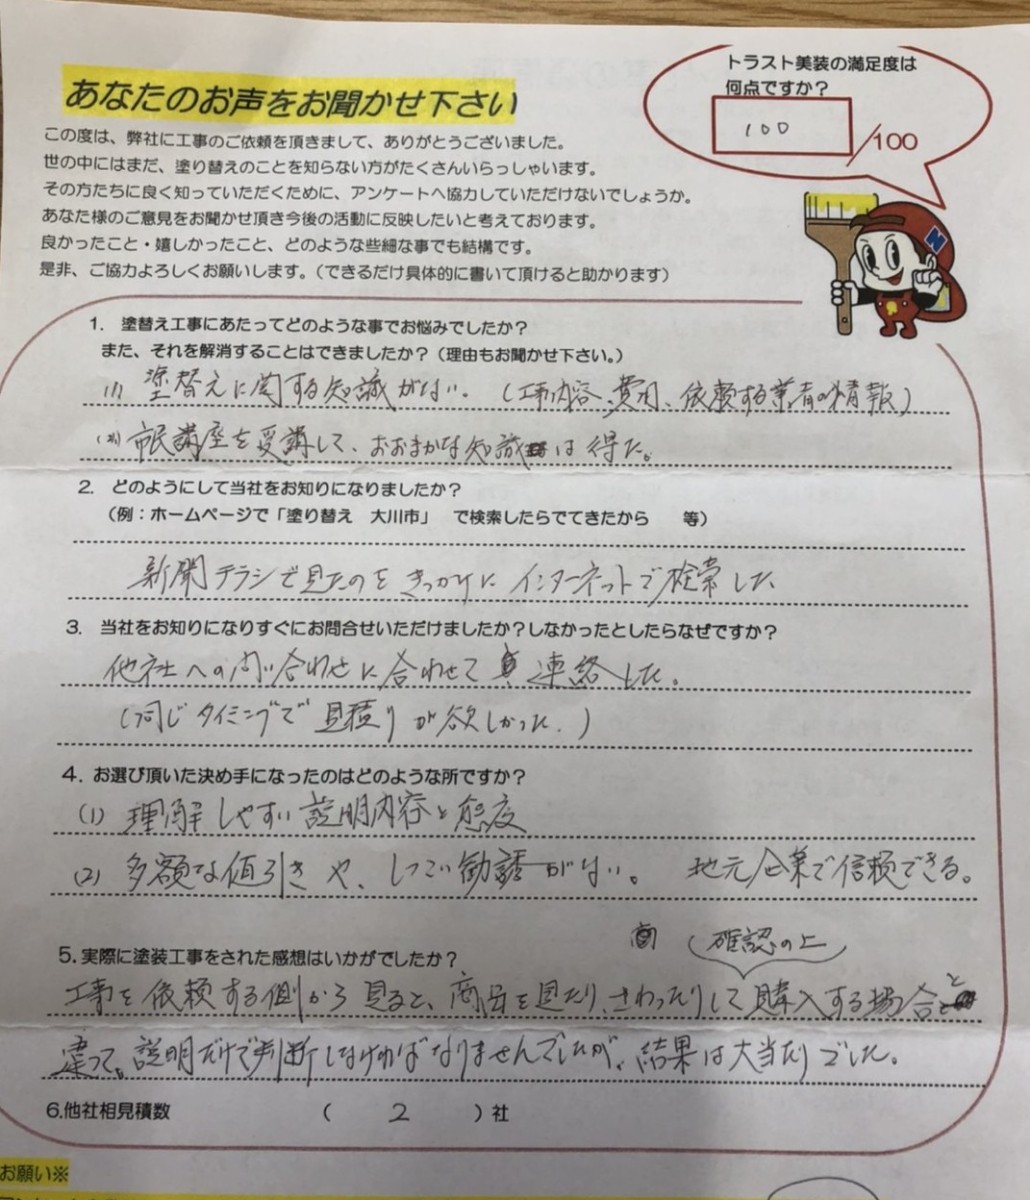 トラスト美装の満足度は
何点ですか？
100
/100
あなたのお声をお聞かせ下さい
この度は、弊社に工事のご依頼を頂きまして、ありがとうございました。
世の中にはまだ、塗り替えのことを知らない方がたくさんいらっしゃいます。
その方たちに良く知っていただくために、アンケートへ協力していただけないでしょうか。
あなた様のご意見をお聞かせ頂き今後の活動に反映したいと考えております。
良かったこと・嬉しかったこと、どのような些細な事でも結構です。
是非、ご協力よろしくお願いします。（できるだけ具体的に書いて頂けると助かります）
N
1. 塗替え工事にあたってどのような事でお悩みでしたか？
また、それを解消することはできましたか？（理由もお聞かせ下さい。）
(1) 塗替えに関する知識がない。（工事内容、費用、依頼する業者の情報）
(2) 市民講座を受講して、おおまかな知識は得た。
2. どのようにして当社をお知りになりましたか？
（例：ホームページで「塗り替え 大川市」 で検索したらでてきたから 等）
新聞チラシで見たのをきっかけに インターネットで検索した
3. 当社をお知りになりすぐにお問合せいただけましたか？しなかったとしたらなぜですか？
他社への問い合わせに合わせて 連絡した。
（同じタイミングで見積りが欲しかった.）
4. お選び頂いた決め手になったのはどのような所ですか？
(1) 理解しやすい説明内容と態度
(2) 多額な値引きや、しつこい勧誘がない。 地元企業で信頼できる。
5. 実際に塗装工事をされた感想はいかがでしたか？
確認の上
工事を依頼する側から見ると、商品を見たり、さわったりして購入する場合と
違って。説明だけで判断しなければなりませんでしたが、結果は大当たりでした。
6.他社相見積数 （ 2 ）社
お願い※